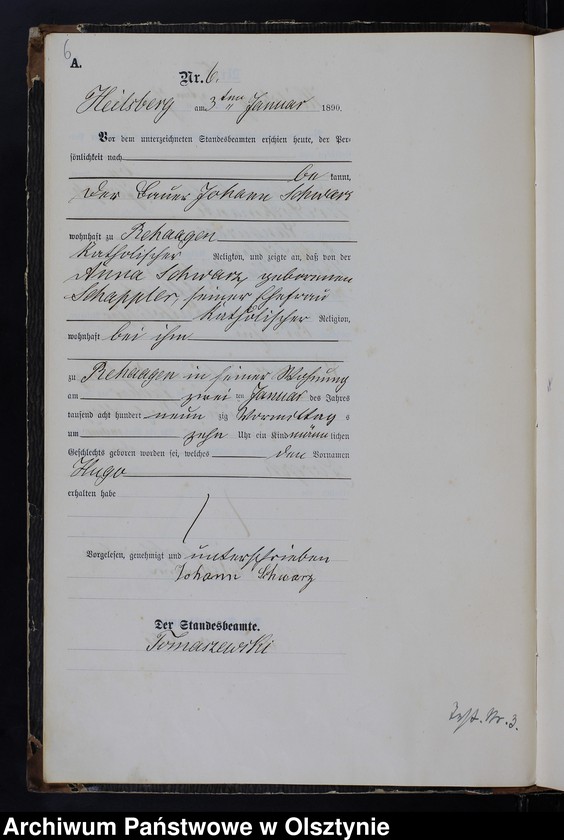 6
A.
Nr. 6.
Heilsberg am 3ten Januar 1890.
Vor dem unterzeichneten Standesbeamten erschien heute, der Per-
sönlichkeit nach
be kannt,
der Bauer Johann Schwarz
wohnhaft zu Rehaagen
katholischer Religion, und zeigte an, daß von der
Anna Schwarz, geborenen
Schappler, seiner Ehefrau
katholischer Religion,
wohnhaft bei ihm
zu Rehaagen in seiner Wohnung
am zwei ten Januar des Jahres
tausend acht hundert neun zig Vormittag s
um zehn Uhr ein Kind männlichen
Geschlechts geboren worden sei, welches den Vornamen
Hugo
erhalten habe
Vorgelesen, genehmigt und unterschrieben
Johann Schwarz
Der Standesbeamte.
Tomaszewski
Nr. 3.
Archiwum Państwowe w Olsztynie